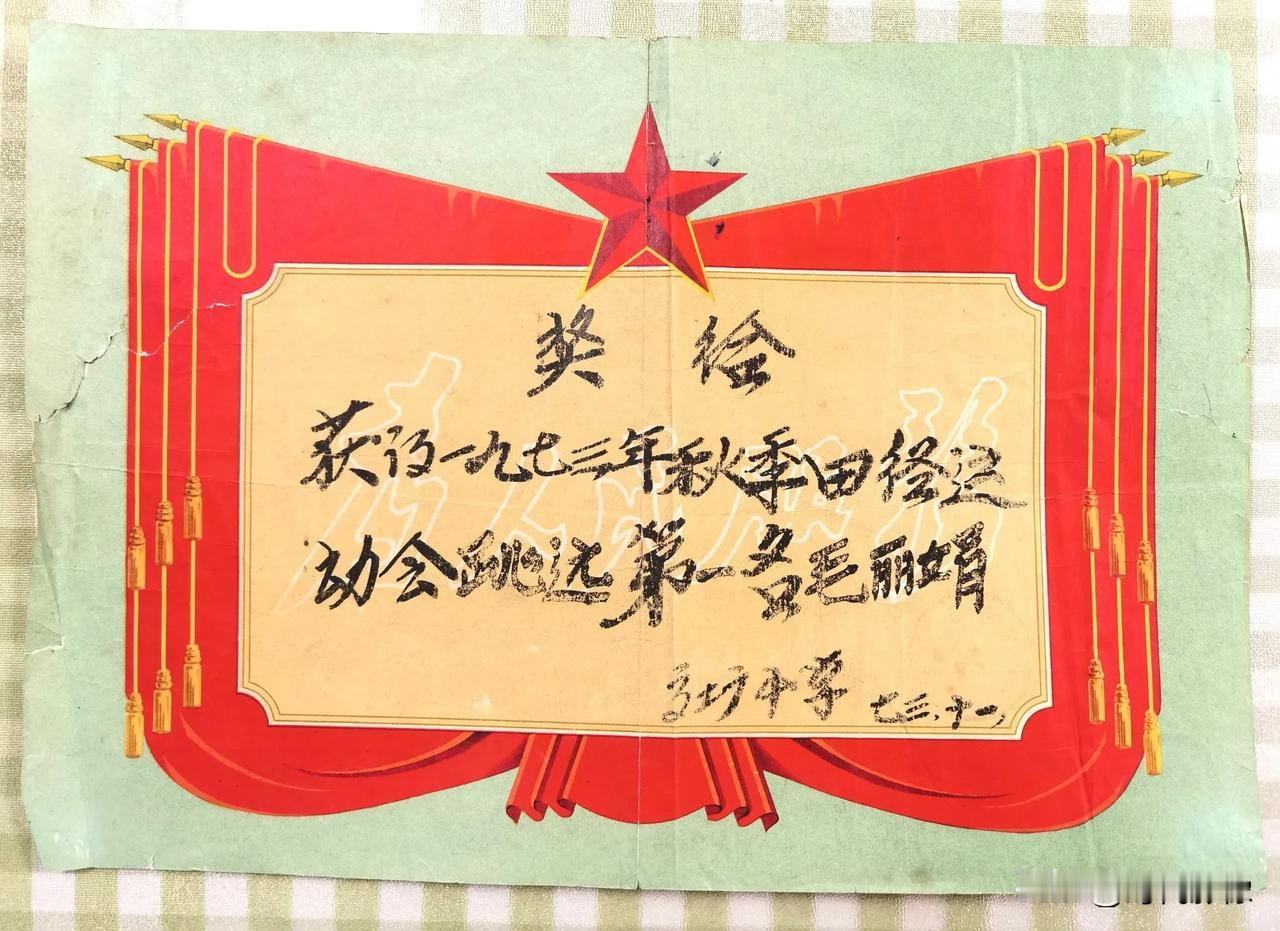 奖 给
获得一九七三年秋季田径运
动会跳远第一名毛丽娟
中学 七三.十一